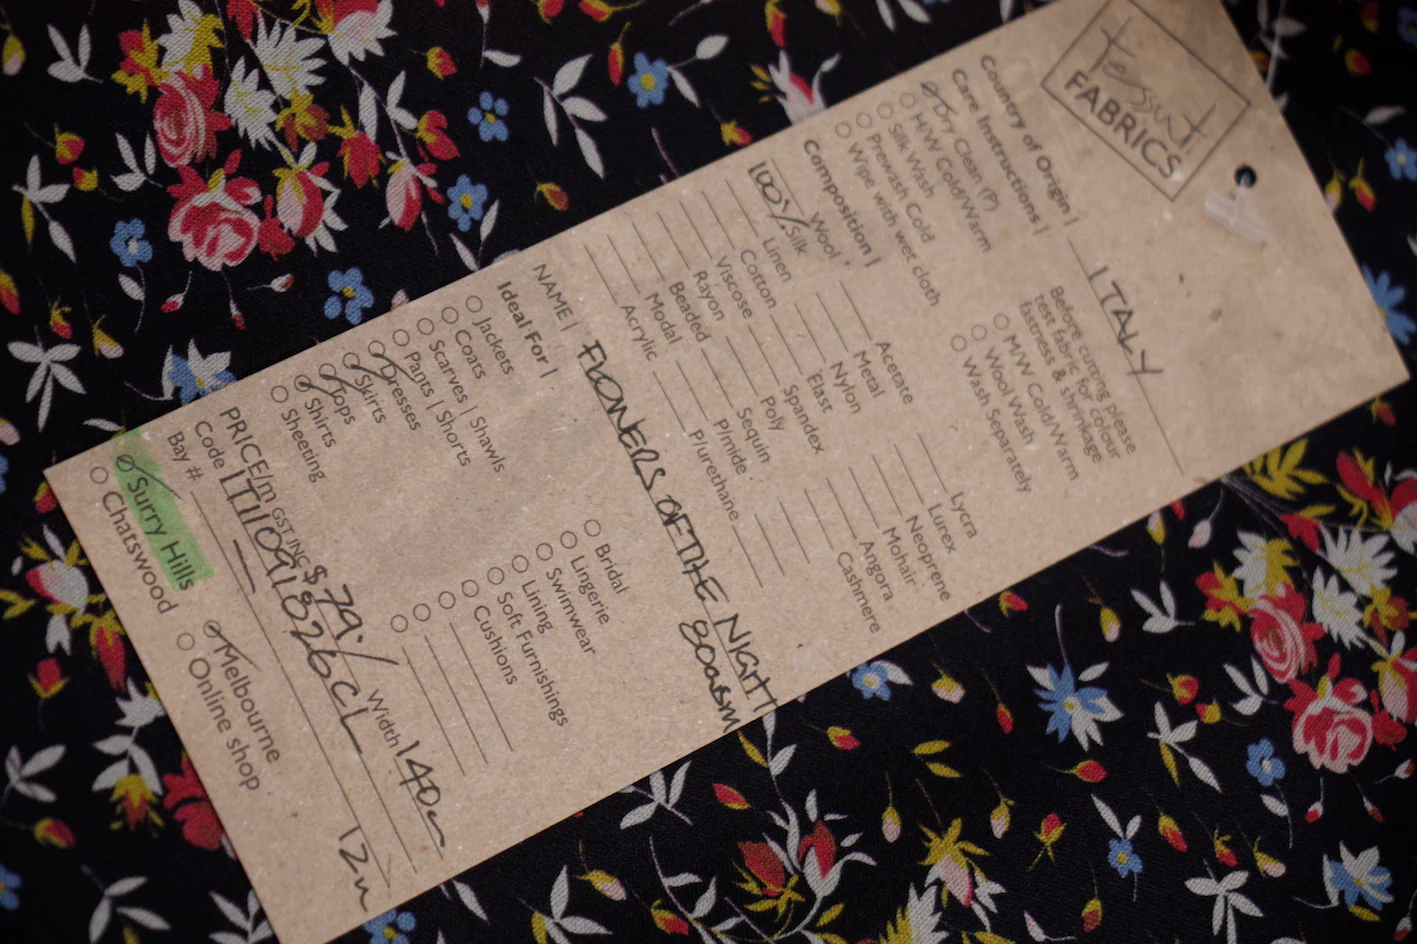 Tessuti
FABRICS
Country of Origin | ITALY
Care Instructions |
Dry Clean (P)
H/W Cold/Warm
Silk Wash
Prewash Cold
Wipe with wet cloth
Before cutting please
test fabric for colour
fastness & shrinkage
M/W Cold/Warm
Wool Wash
Wash Separately
Composition |
Wool
100% Silk
Linen
Cotton
Viscose
Rayon
Beaded
Modal
Acrylic
Acetate
Metal
Nylon
Elast
Spandex
Poly
Sequin
P/mide
P/urethane
Lycra
Lurex
Neoprene
Mohair
Angora
Cashmere
NAME | FLOWERS OF THE NIGHT
Ideal For |
Jackets
Coats
Scarves | Shawls
Pants | Shorts
Dresses
Skirts
Tops
Shirts
Sheeting
Bridal
Lingerie
Swimwear
Lining
Soft Furnishings
Cushions
PRICE/m GST INC $ 79./ Width 140
Code
Bay #
Surry Hills
Chatswood
Melbourne
Online shop